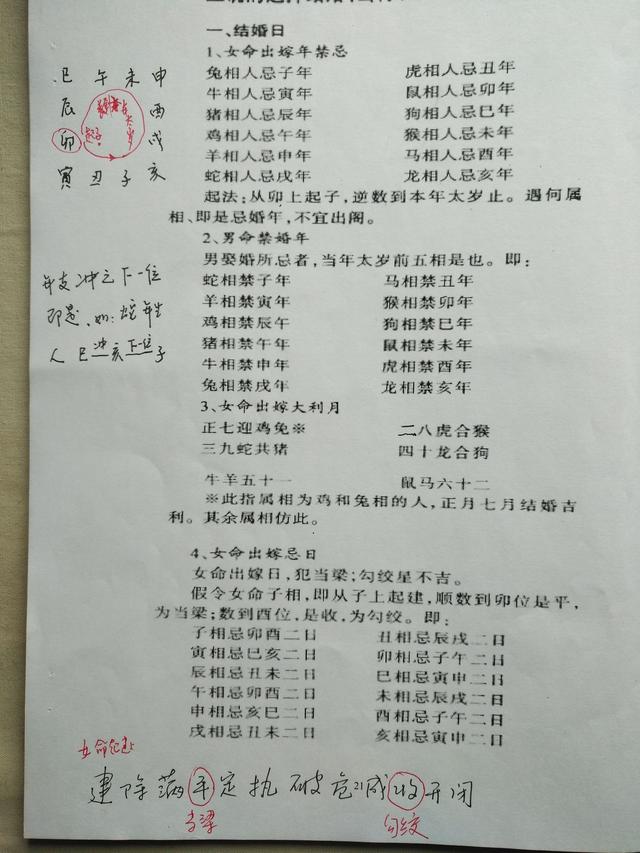 一、结婚日
1、女命出嫁年禁忌
兔相人忌子年 虎相人忌丑年
牛相人忌寅年 鼠相人忌卯年
猪相人忌辰年 狗相人忌巳年
鸡相人忌午年 猴相人忌未年
羊相人忌申年 马相人忌酉年
蛇相人忌戌年 龙相人忌亥年
起法：从卯上起子，逆数到本年太岁止。遇何属
相、即是忌婚年，不宜出阁。
2、男命禁婚年
男娶婚所忌者，当年太岁前五相是也。即：
蛇相禁子年 马相禁丑年
羊相禁寅年 猴相禁卯年
鸡相禁辰午 狗相禁巳年
猪相禁午年 鼠相禁未年
牛相禁申年 虎相禁酉年
兔相禁戌年 龙相禁亥年
3、女命出嫁大利月
正七迎鸡兔※ 二八虎合猴
三九蛇共猪 四十龙合狗
牛羊五十一 鼠马六十二
※此指属相为鸡和兔相的人，正月七月结婚吉
利。其余属相仿此。
4、女命出嫁忌日
女命出嫁日，犯当梁；勾绞星不吉。
假令女命子相，即从子上起建，顺数到卯位是平，
为当梁；数到酉位，是收，为勾绞。即：
子相忌卯酉二日 丑相忌辰戌二日
寅相忌巳亥二日 卯相忌子午二日
辰相忌丑未二日 巳相忌寅申二日
午相忌卯酉二日 未相忌辰戌二日
申相忌亥巳二日 酉相忌子午二日
戌相忌丑未二日 亥相忌寅申二日
巳 午 未 申
辰 酉
卯 起子 戌
寅 丑 子 亥
年支冲之下一位
即是、如：蛇年生
人 巳冲亥下一位子
女命起建
建 除 满 平 定 执 破 危 成 收 开 闭
当梁 勾绞